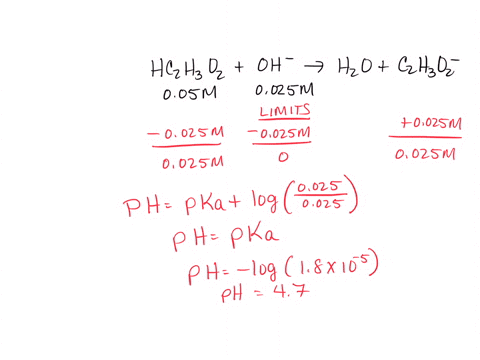 HC₂H₃O₂ + OH⁻ → H₂O + C₂H₃O₂⁻
0.05M 0.025M
LIMITS
−0.025M −0.025M +0.025M
0.025M 0 0.025M
PH = PKa + log(0.025/0.025)
PH = PKa
PH = −log(1.8×10⁻⁵)
PH = 4.7